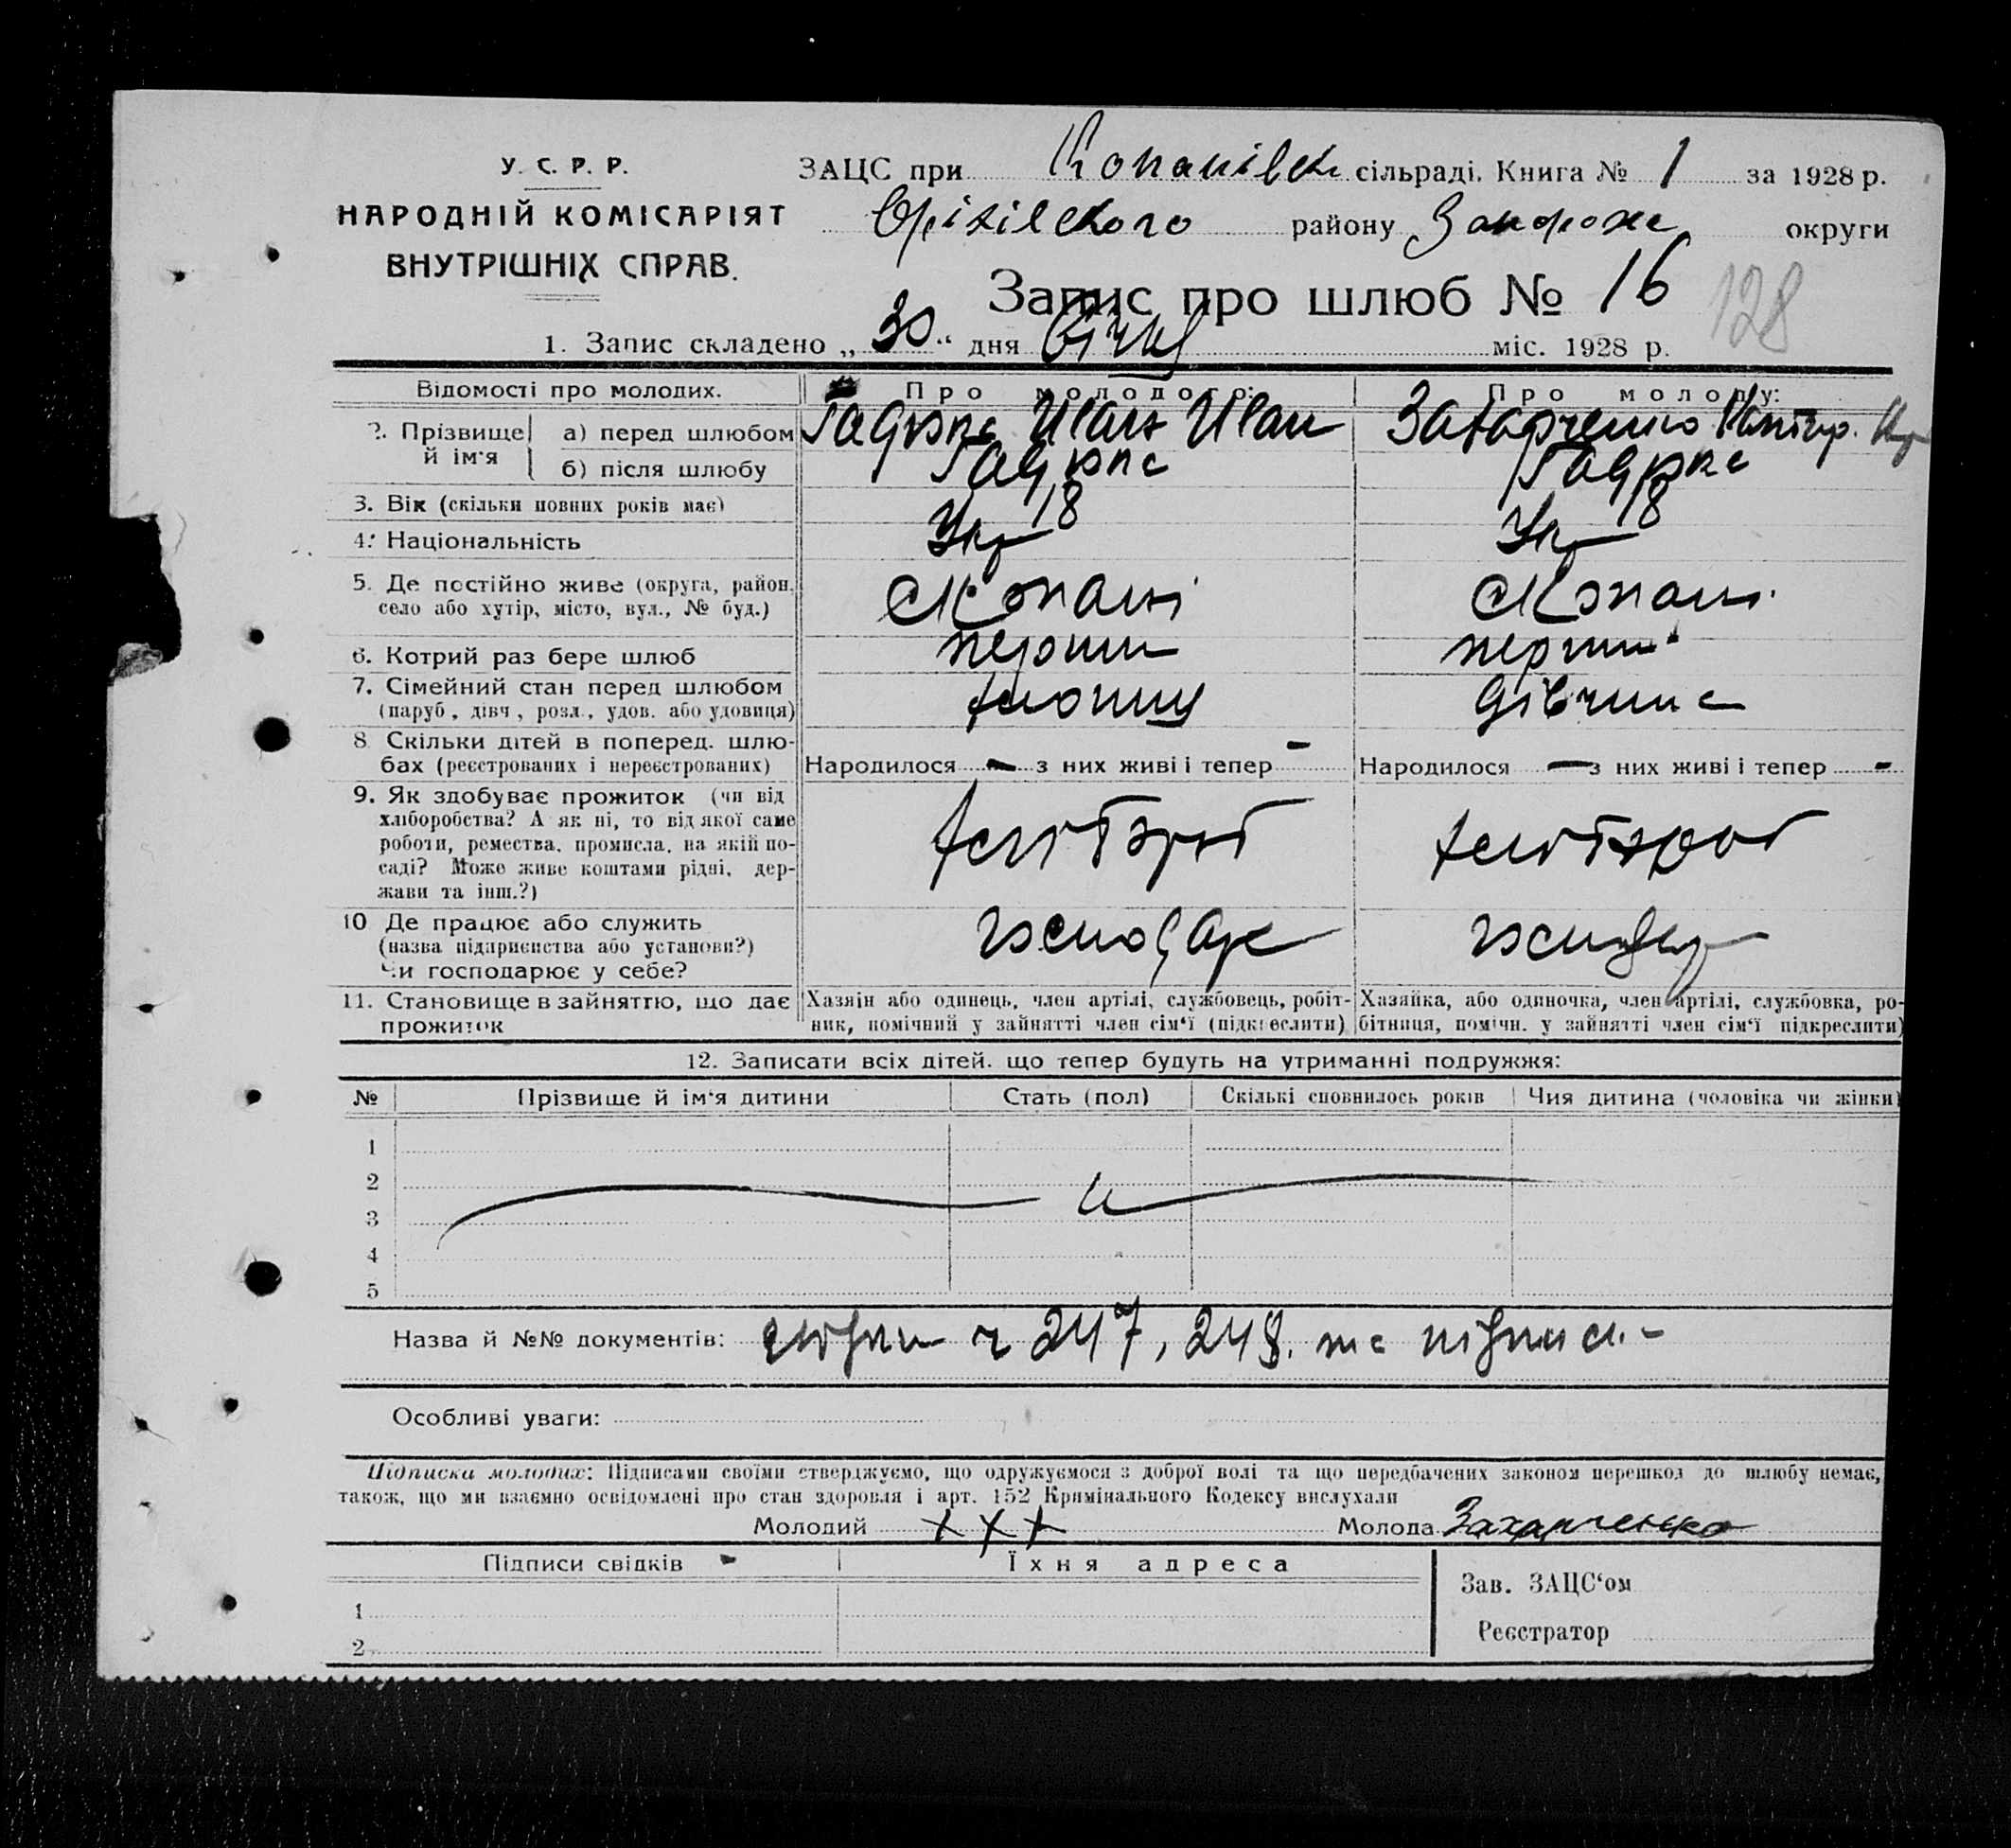 У. С. Р. Р.
НАРОДНІЙ КОМІСАРІЯТ
ВНУТРІШНІХ СПРАВ.
ЗАЦС при Копанівск сільраді. Книга № 1 за 1928 р.
Оріхівского району Запорожс округи
Запис про шлюб № 16
128
1. Запис складено „ 30 “ дня січня міс. 1928 р.
Відомості про молодих. Про молодого: Про молоду:
2. Прізвище й ім'я
а) перед шлюбом Иван Иван Захарченко
б) після шлюбу
3. Вік (скільки повних років має) 18 18
4. Національність Укр Укр
5. Де постійно живе (округа, район, село або хутір, місто, вул., № буд.) с Копані с Копані
6. Котрий раз бере шлюб перши перши
7. Сімейний стан перед шлюбом (паруб., дівч., розл., удов. або удовиця) хлопець дівчина
8. Скільки дітей в поперед. шлюбах (реєстрованих і нереєстрованих) Народилося - з них живі і тепер - Народилося - з них живі і тепер -
9. Як здобуває прожиток (чи від хліборобства? А як ні, то від якої саме роботи, ремества, промисла, на якій посаді? Може живе коштами рідні, держави та інш.?) хлібороб хлібороб
10 Де працює або служить (назва підприємства або установи?) Чи господарює у себе? господар господар
11. Становище в зайняттю, що дає прожиток
Хазяін або одинець, член артілі, службовець, робітник, помічний у зайнятті член сім'ї (підкреслити)
Хазяйка, або одиночка, член артілі, службовка, робітниця, помічн. у зайнятті член сім'ї підкреслити)
12. Записати всіх дітей. що тепер будуть на утриманні подружжя:
№ Прізвище й ім'я дитини Стать (пол) Скількі сповнилось років Чия дитина (чоловіка чи жінки)
1
2
3
4
5
Назва й №№ документів: 247, 248. та підписи.-
Особливі уваги:
Підписка молодих: Підписами своїми стверджуємо, що одружуємося з доброї волі та що передбачених законом перешкод до шлюбу немає,
також, що ми взаємно освідомлені про стан здоровля і арт. 152 Кримінального Кодексу вислухали
Молодий + + + Молода Захарченко
Підписи свідків Їхня адреса
1
2
Зав. ЗАЦС'ом
Реєстратор